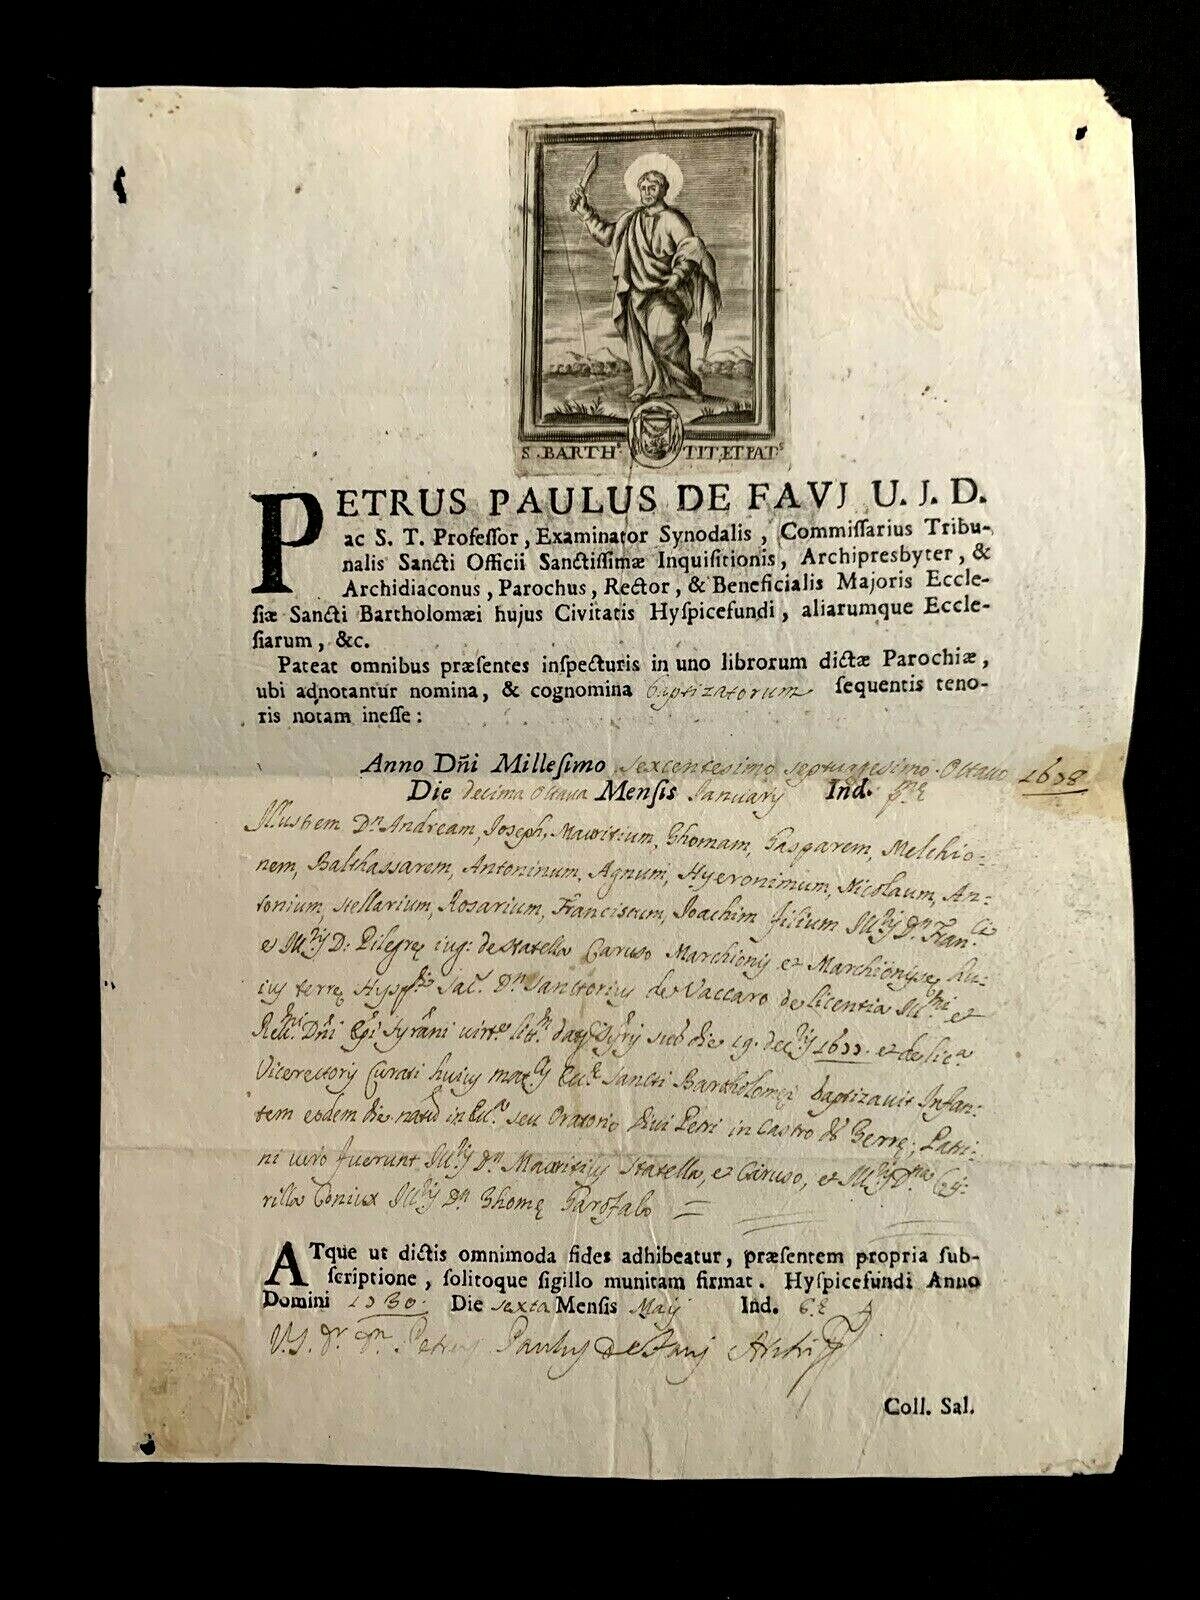 S. BARTHS. TIT. ET PATS.
PETRUS PAULUS DE FAVJ U. J. D.
ac S. T. Profeſſor, Examinator Synodalis, Commiſſarius Tribu-
nalis Sancti Officii Sanctiſſimæ Inquiſitionis, Archipresbyter, &
Archidiaconus, Parochus, Rector, & Beneficialis Majoris Eccle-
ſiæ Sancti Bartholomæi hujus Civitatis Hyſpicefundi, aliarumque Eccle-
ſiarum, &c.
Pateat omnibus præſentes inſpecturis in uno librorum dictæ Parochiæ,
ubi adnotantur nomina, & cognomina Baptizatorum ſequentis teno-
ris notam ineſſe:
Anno Dñi Milleſimo Sexcentesimo septuagesimo Octavo 1678
Die decima Octava Menſis Januarij Ind. pm̃ę
Illustrem Dn. Andream, Joseph, Mauritium, Thomam, Gasparem, Melchio-
nem, Balthassarem, Antoninum, Agnum, Hyeronimum, Nicolaum, An-
tonium, stellarium, Rosarium, Franciscum, Joachim filium Ill.ris Dn. Fran.ci
e Ill.ris D. Pilegrę iug: de statella Caruso Marchionis et Marchionisse hu-
ius terrę Sac. Dn. Sanctorius de Vaccaro de licentia Ill.mi et
Reu.mi Dñi sub die 19. 1677. et de lic.a
Vicerectoris Curati huius Sancti Bartholomęi baptizavit Infan-
tem eodem die natũ in seu Oratorio Diui Petri in Castro Terrę; Patri-
ni uero fuerunt Ill.ris Dn. Mauritius statella, et Caruso, et Ill.ris D.na Cy-
rilla Coniux Ill.ris Dn. Thomę Garofalo =
ATque ut dictis omnimoda fides adhibeatur, præſentem propria ſub-
ſcriptione, ſolitoque ſigillo munitam firmat. Hyſpicefundi Anno
Domini 1730. Die sexta Menſis Maij Ind.
Petrus Paulus de Fauj
Coll. Sal.